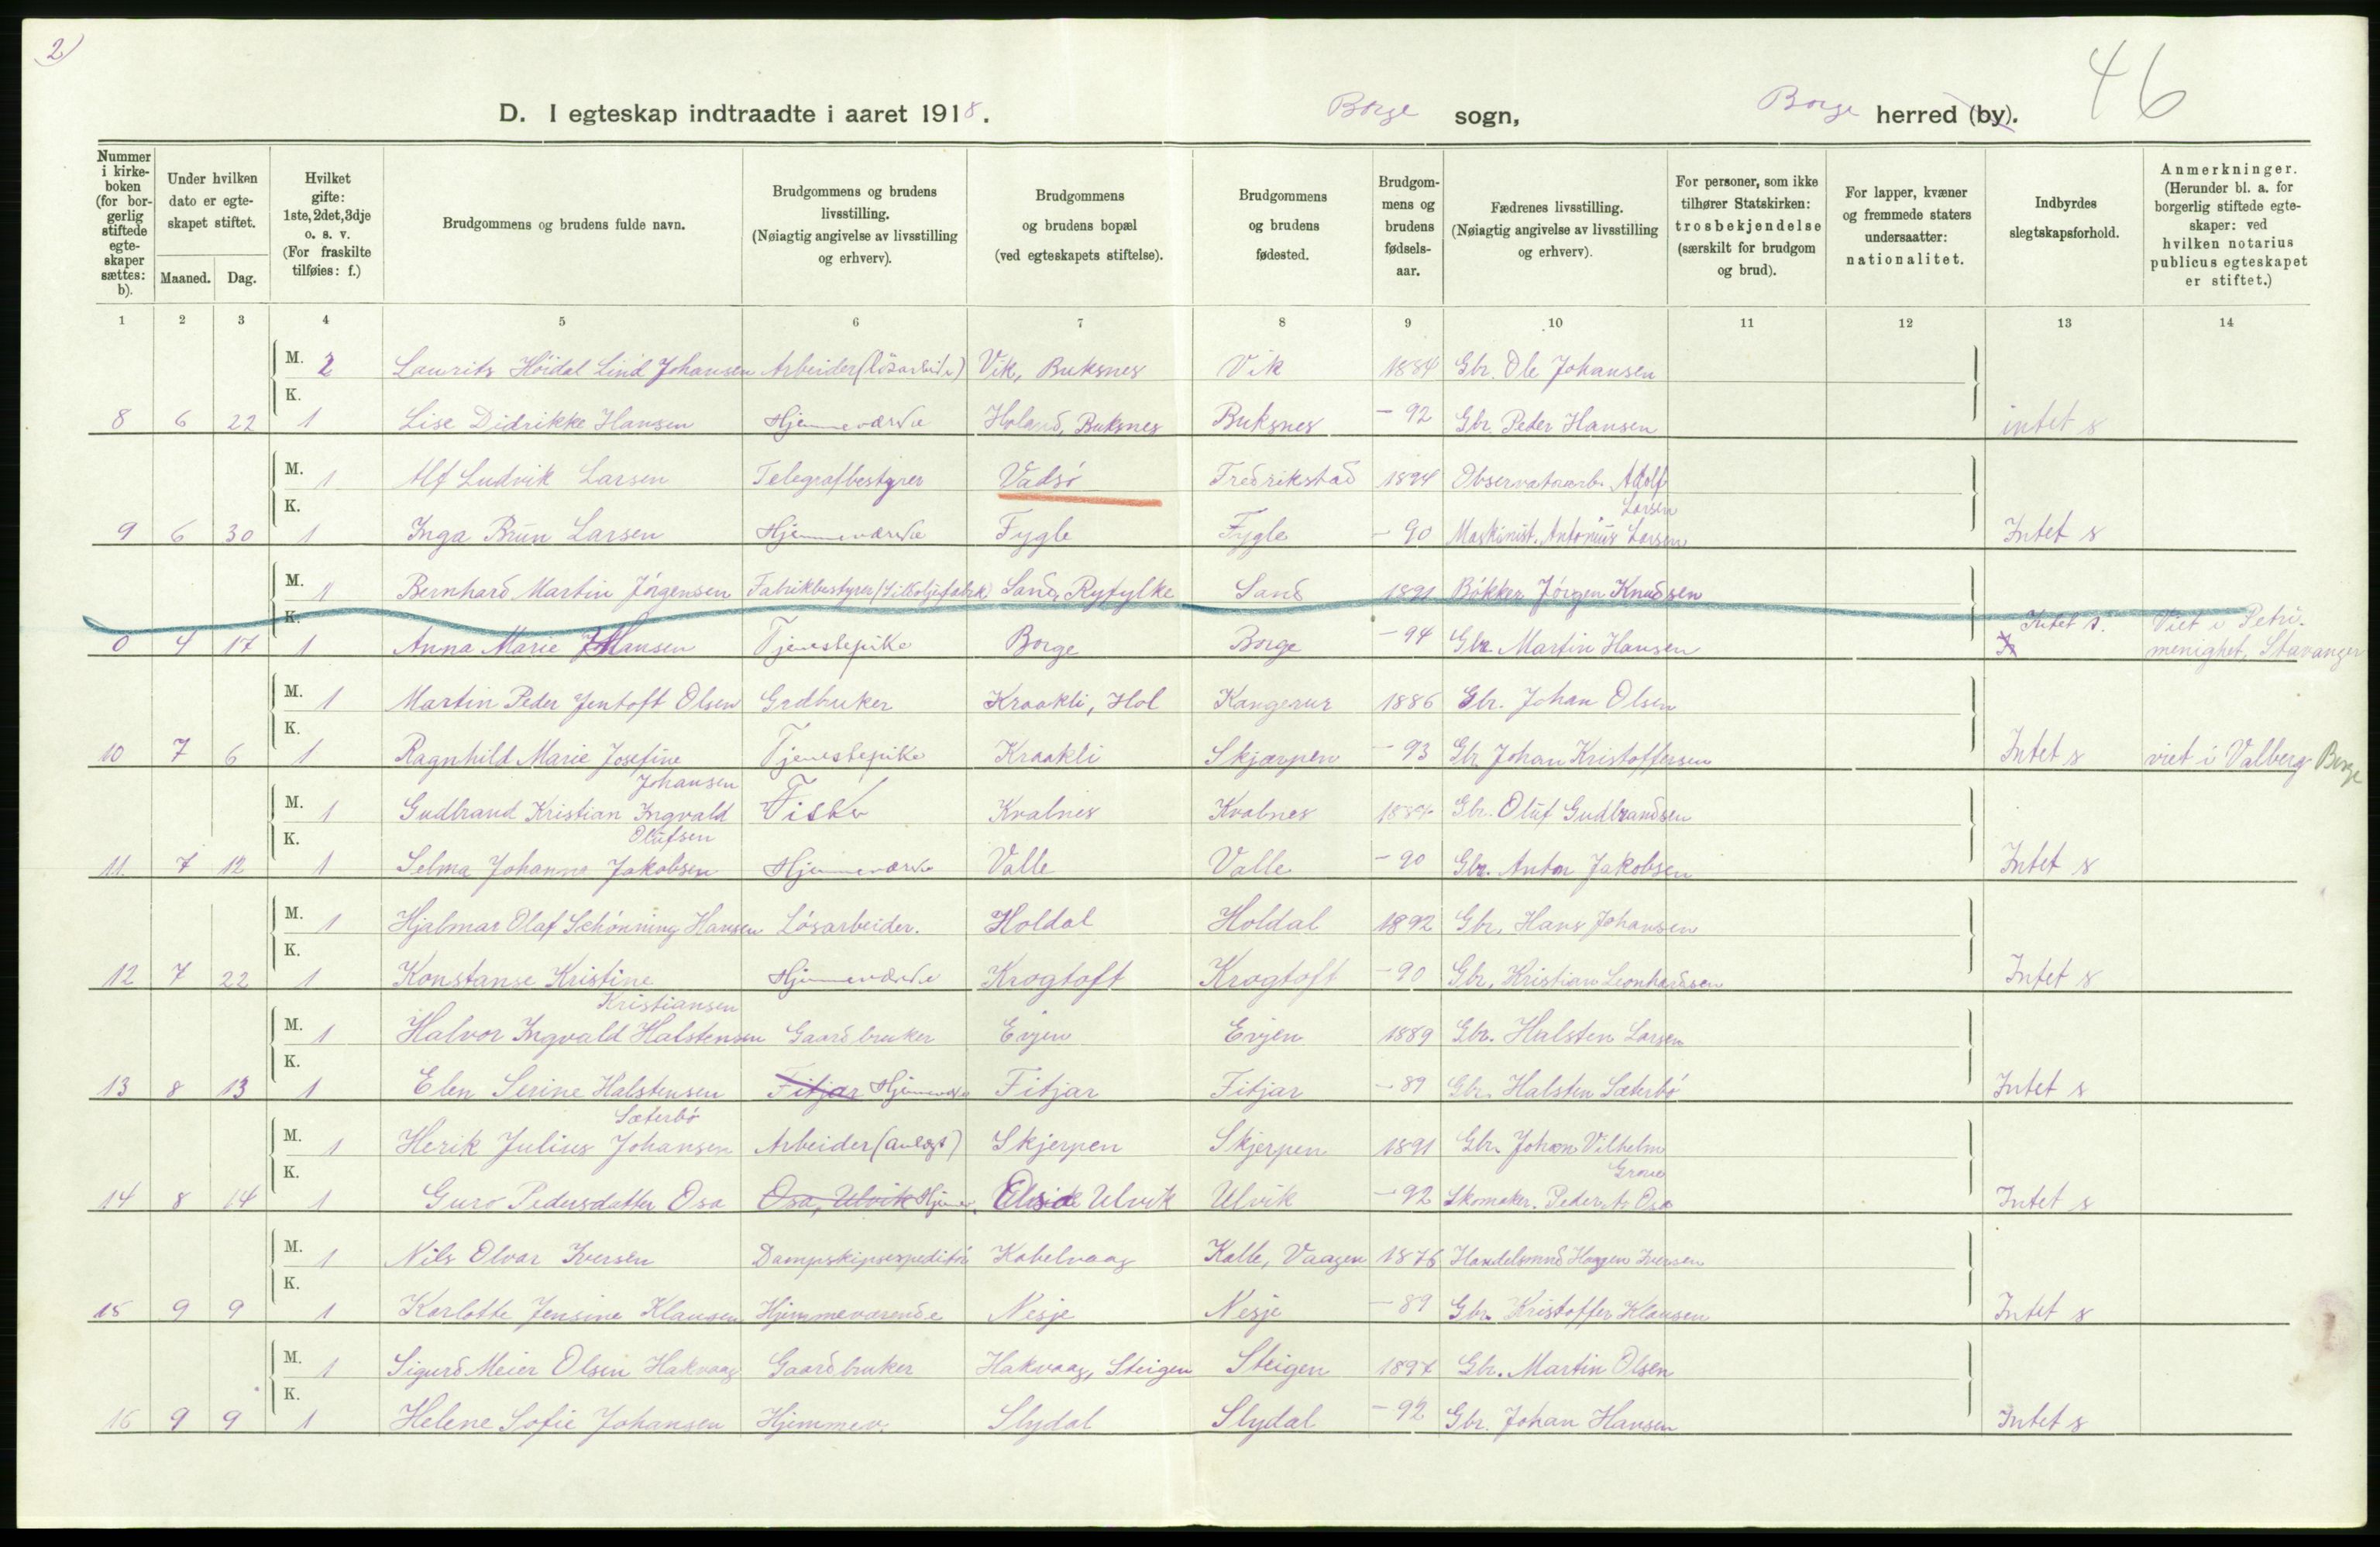 2)
46
D. I egteskap indtraadte i aaret 1918. Borge sogn, Borge herred (by).
Nummer i kirke-boken (for bor-gerlig stiftede egte-skaper sættes: b).
Under hvilken dato er egte-skapet stiftet.
Maaned. Dag.
Hvilket gifte: 1ste, 2det, 3dje o. s. v. (For fraskilte tilføies: f.)
Brudgommens og brudens fulde navn.
Brudgommens og brudens livsstilling. (Nøiagtig angivelse av livsstilling og erhverv).
Brudgommens og brudens bopæl (ved egteskapets stiftelse).
Brudgommens og brudens fødested.
Brudgom-mens og brudens fødsels-aar.
Fædrenes livsstilling. (Nøiagtig angivelse av livsstilling og erhverv).
For personer, som ikke tilhører Statskirken: trosbekjendelse (særskilt for brudgom og brud).
For lapper, kvæner og fremmede staters undersaatter: nationalitet.
Indbyrdes slegtskapsforhold.
Anmerkninger. (Herunder bl. a. for borgerlig stiftede egte-skaper: ved hvilken notarius publicus egteskapet er stiftet.)
1 2 3 4 5 6 7 8 9 10 11 12 13 14
M. 2 Laurits Höidal Lind Johansen Arbeider (lösarbeider) Vik, Buksnes Vik 1884 Gbr. Ole Johansen
K.
8 6 22 1 Lise Didrikke Hansen Hjemmeværende Holand, Buksnes Buksnes - 92 Gbr. Peder Hansen intet s
M. 1 Alf Ludvik Larsen Telegrafbestyrer Vadsö Fredrikstad 1894 Observatorarb. Adolf
Larsen
K.
9 6 30 1 Inga Brun Larsen Hjemmeværende Fygle Fygle - 90 Maskinist. Antonius Larsen Intet s
M. 1 Bernhard Martin Jörgensen Fabrikbestyrer (Sildoljefabrik) Sand, Ryfylke Sand 1891 Bökker Jörgen Knudsen
K.
0 4 17 1 Anna Marie Hansen Tjenestepike Borge Borge - 94 Gbr. Martin Hansen Intet s. Viet i Petri.
menighet, Stavanger
M. 1 Martin Peder Jentoft Olsen Grdbruker Kraakli, Hol Kangerur 1886 Gbr. Johan Olsen
K.
10 7 6 1 Ragnhild Marie Josefine Tjenestepike Kraakli Skjærpen - 93 Gbr Johan Kristoffersen Intet s viet i Valberg Borge
Johansen
M. 1 Gudbrand Kristian Ingvald Fisker Kvalnes Kvalnes Gbr. Oluf Gudbrandsen
Olufsen
K.
11 7 12 1 Selma Johanna Jakobsen Hjemmeværende Valle Valle - 90 Gbr. Anton Jakobsen Intet s
M. 1 Hjalmar Olaf Schönning Hansen Lösarbeider. Holdal Holdal 1892 Gbr. Hans Johansen
K.
12 7 22 1 Konstanse Kristine Hjemmeværende Krogtoft Krogtoft - 90 Gbr. Kristian Leonhardsen Intet s
Kristiansen
M. 1 Halvor Ingvald Halstensen Gaardbruker Evjen Evjen 1889 Gbr. Halsten Larsen
K.
13 8 13 1 Elen Serine Halstensen Fitjar Hjemmevær Fitjar Fitjar - 89 Gbr. Halsten Sæterbö Intet s
Sæterbö
M. 1 Herik Julius Johansen Arbeider (anlægs) Skjerpen Skjerpen 1891 Gbr. Johan Vilhelm
K.
14 8 14 1 Guro Pedersdatter Osa Osa, Ulvik Hjemmev. Ulvik Ulvik - 92 Skomaker. Peder Osa Intet s
M. 1 Nils Olvar Iversen Dampskipsexpeditör Kabelvaag Kalle, Vaagen 1876 Handelsmand Haagen Iversen
K.
15 9 9 1 Karlotte Jensine Klausen Hjemmeværende Nesje Nesje - 89 Gbr. Kristoffer Klausen Intet s
M. 1 Sigurd Meier Olsen Hakvaag Gaardbruker Hakvaag, Steigen Steigen 1897 Gbr. Martin Olsen
K.
16 9 9 1 Helene Sofie Johansen Hjemmev. Slydal Slydal - 92 Gbr. Johan Hansen Intet s